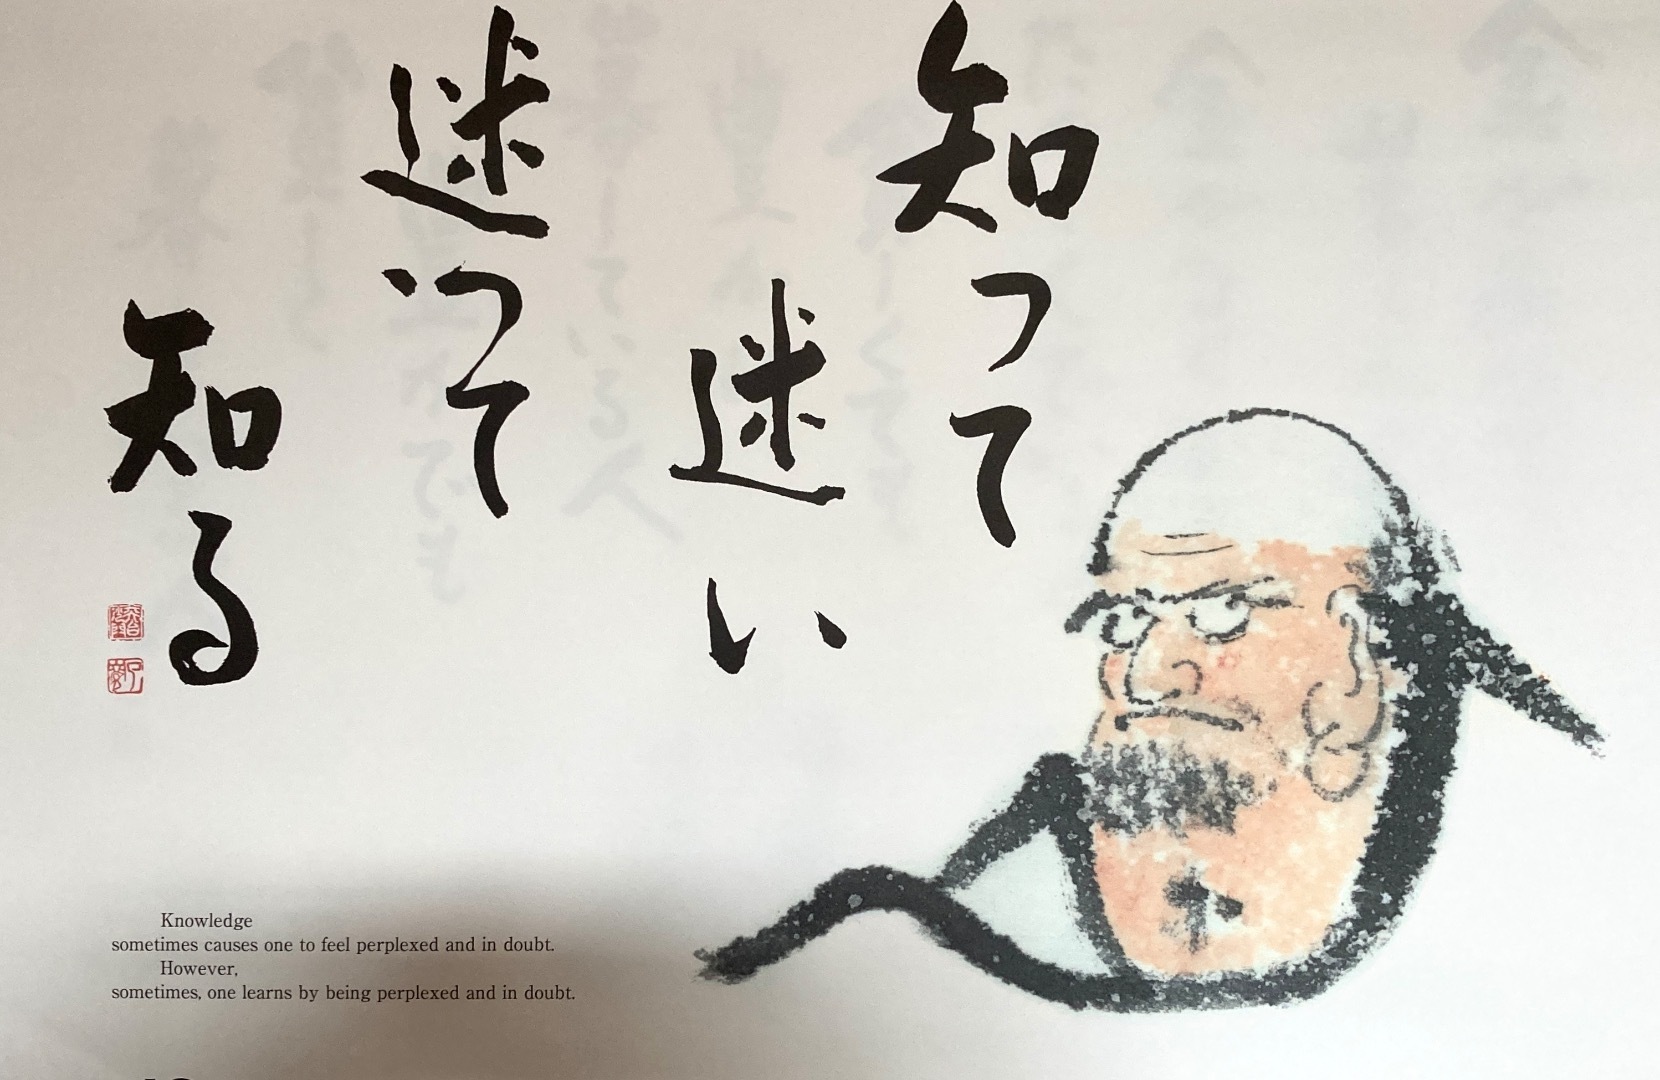 知って
迷い
迷って
知る
Knowledge
sometimes causes one to feel perplexed and in doubt.
However,
sometimes, one learns by being perplexed and in doubt.